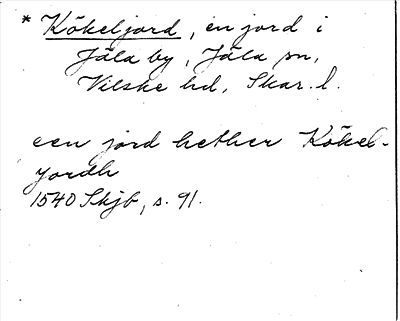 * Kökeljord, en jord i
Jäla by, Jäla sn,
Vilske hd, Skar. l.
een jord hether Kökel-
jordh
1540 Skjb, s. 91.